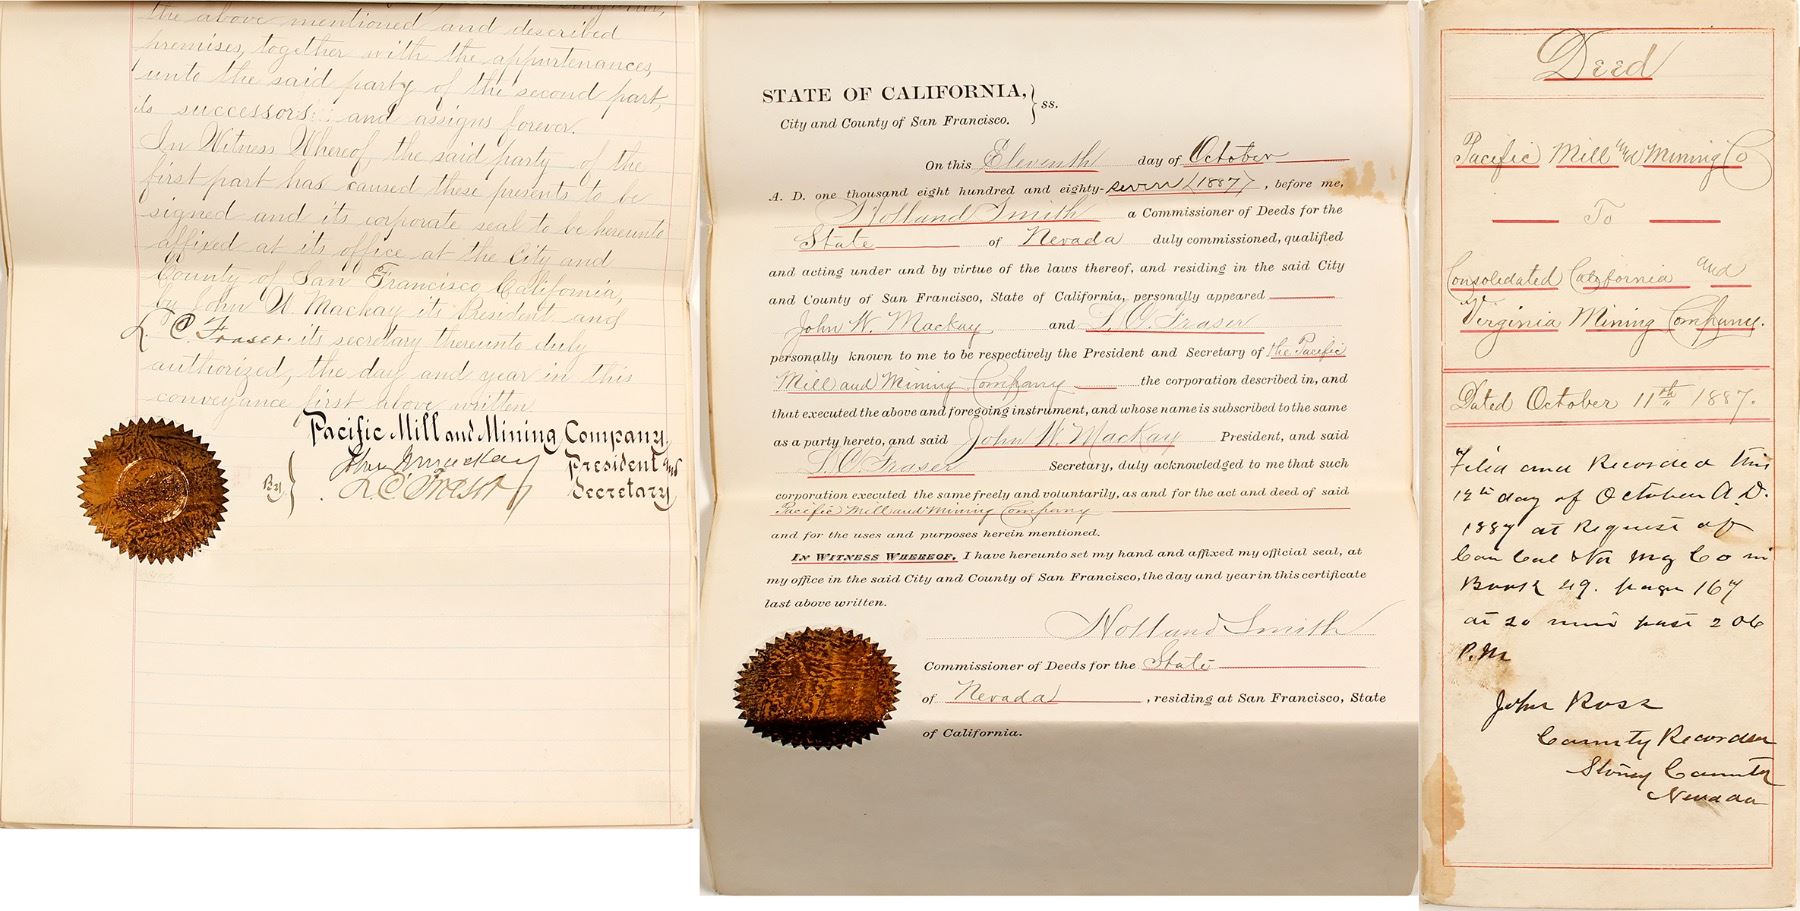 the above mentioned and described
premises, together with the appurtenances,
unto the said party of the second part,
its successors and assigns forever.
In Witness Whereof, the said party of the
first part has caused these presents to be
signed and its corporate seal to be hereunto
affixed at its office at the City and
County of San Francisco, California,
by John W. Mackay its President, and
L. C. Fraser, its secretary thereunto duly
authorized, the day and year in this
conveyance first above written.
Pacific Mill and Mining Company,
By John W Mackay President and
L C Fraser Secretary
STATE OF CALIFORNIA, } ss.
City and County of San Francisco.
On this Eleventh day of October
A. D. one thousand eight hundred and eighty-seven (1887), before me,
Holland Smith a Commissioner of Deeds for the
State of Nevada duly commissioned, qualified
and acting under and by virtue of the laws thereof, and residing in the said City
and County of San Francisco, State of California, personally appeared
John W. Mackay and L. C. Fraser
personally known to me to be respectively the President and Secretary of the Pacific
Mill and Mining Company the corporation described in, and
that executed the above and foregoing instrument, and whose name is subscribed to the same
as a party hereto, and said John W. Mackay President, and said
L. C. Fraser Secretary, duly acknowledged to me that such
corporation executed the same freely and voluntarily, as and for the act and deed of said
Pacific Mill and Mining Company
and for the uses and purposes herein mentioned.
IN WITNESS WHEREOF, I have hereunto set my hand and affixed my official seal, at
my office in the said City and County of San Francisco, the day and year in this certificate
last above written.
Holland Smith
Commissioner of Deeds for the State
of Nevada, residing at San Francisco, State
of California.
Deed
Pacific Mill and Mining Co
To
Consolidated California and
Virginia Mining Company.
Dated October 11th 1887.
Filed and Recorded this
12th day of October A.D.
1887 at Request of
Con Cal & Va Mg Co in
Book 49. page 167
at 20 min past 2 o'c
P.M
John Ross
County Recorder
Storey County
Nevada